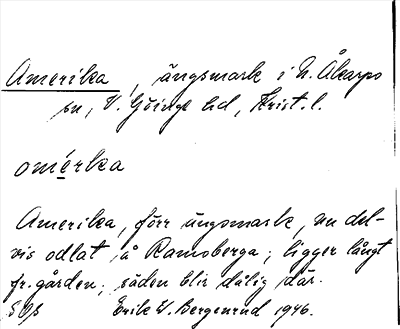 Amerika, ängsmark i N. Åkarps
sn, V. Göinge hd, Krist. l.
omérka
Amerika, förr ängsmark, nu del-
vis odlat, å Ramsberga; ligger långt
fr. gården; säden blir dålig där.
Erik W. Bergenrud 1946.